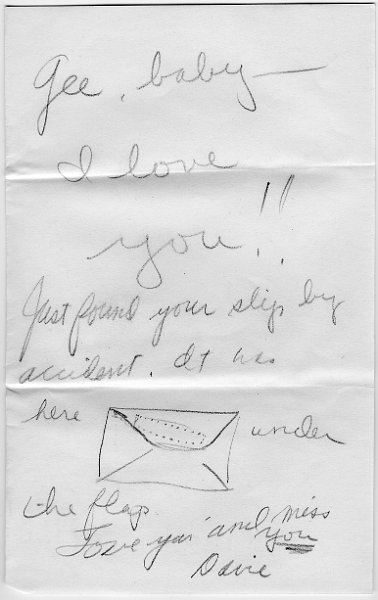 Gee, baby—
I love
you!!
Just found your slip by
accident. It was
here under
the flap.
Love you and miss
you
Davie